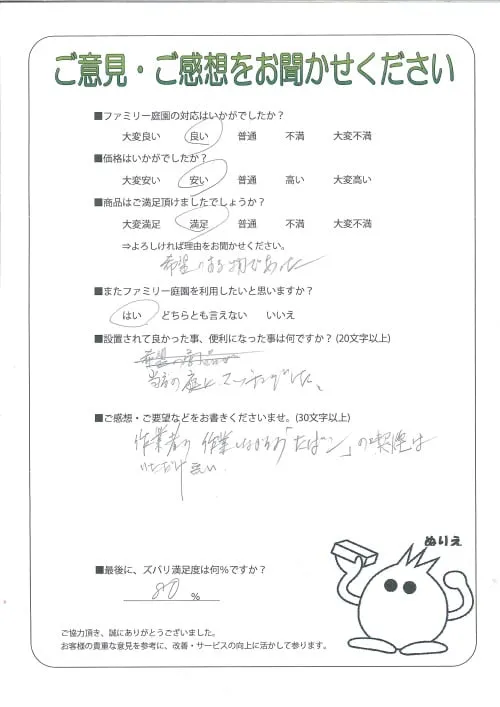 ご意見・ご感想をお聞かせください
■ファミリー庭園の対応はいかがでしたか？
大変良い 良い 普通 不満 大変不満
■価格はいかがでしたか？
大変安い 安い 普通 高い 大変高い
■商品はご満足頂けましたでしょうか？
大変満足 満足 普通 不満 大変不満
⇒よろしければ理由をお聞かせください。
希望のある物であった
■またファミリー庭園を利用したいと思いますか？
はい どちらとも言えない いいえ
■設置されて良かった事、便利になった事は何ですか？(20文字以上)
当方の庭にマッチングした。
■ご感想・ご要望などをお書きくださいませ。(30文字以上)
作業者の作業しながらの「たばこ」の喫煙は
いただけない
ぬりえ
■最後に、ズバリ満足度は何％ですか？
80 %
ご協力頂き、誠にありがとうございました。
お客様の貴重な意見を参考に、改善・サービスの向上に活かして参ります。